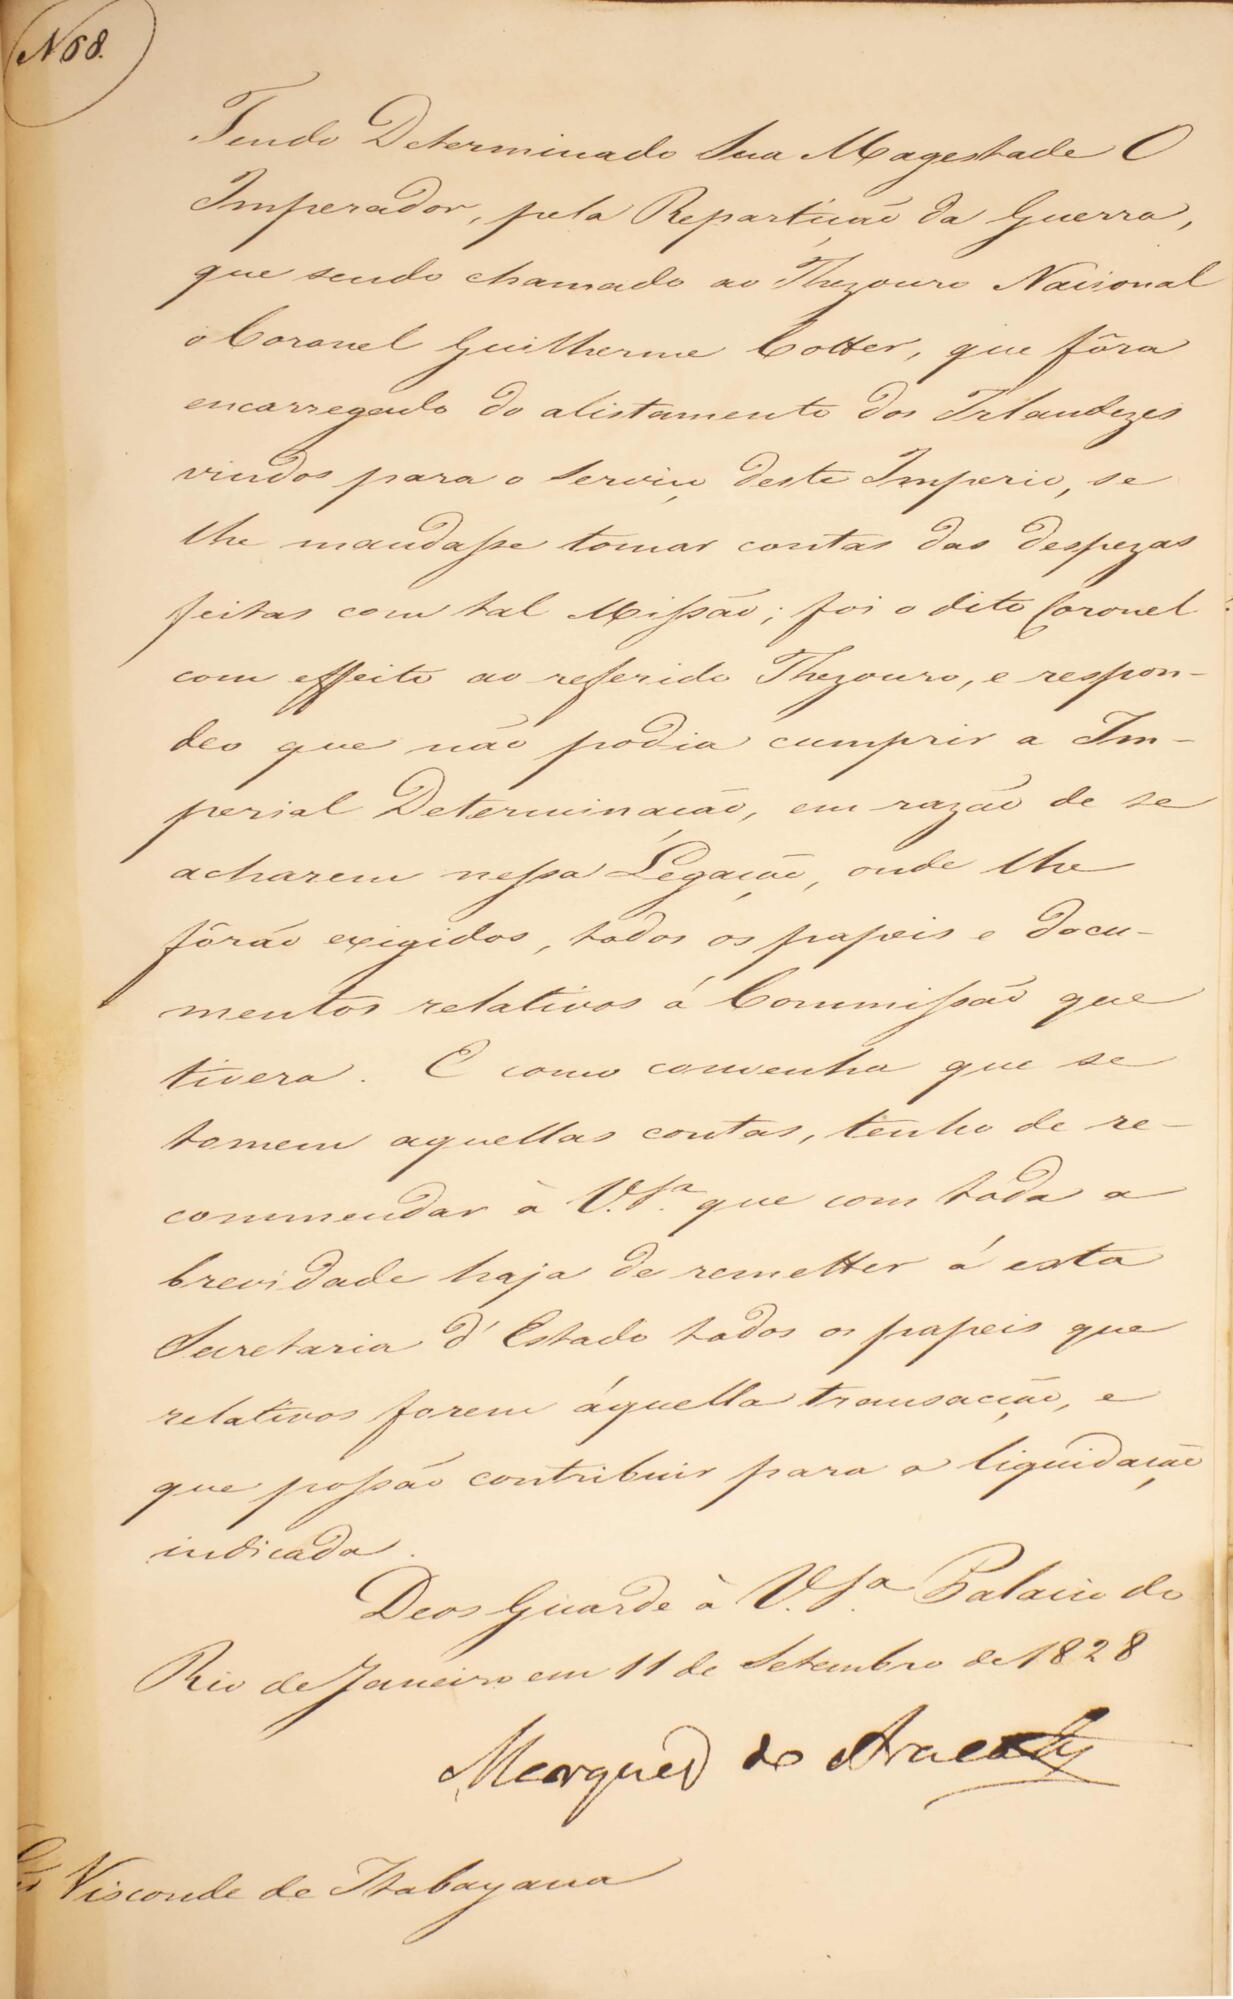 N 68.
Tendo Determinado Sua Magestade O
Imperador, pela Repartição da Guerra,
que sendo chamado ao Thezouro Nacional
o Coronel Guilherme Cotter, que fôra
encarregado do alistamento dos Irlandezes
vindos para o Serviço deste Imperio, se
lhe mandasse tomar contas das despezas
feitas com tal Missão; foi o dito Coronel
com effeito ao referido Thezouro, e respon-
deo que não podia cumprir a Im-
perial Determinação, em razão de se
acharem nessa Legação, onde lhe
fôrão exigidos, todos os papeis e docu-
mentos relativos á Commissão que
tivera. E como convenha que se
tomem aquellas contas, tenho de re-
commendar à V. Sª. que com toda a
brevidade haja de remetter á esta
Secretaria d'Estado todos os papeis que
relativos forem áquella transacção, e
que possão contribuir para a liquidação
indicada.
Deos Guarde à V. Sª. Palacio do
Rio de Janeiro em 11 de Setembro de 1828
Marquez do Aracaty
Visconde de Itabayana